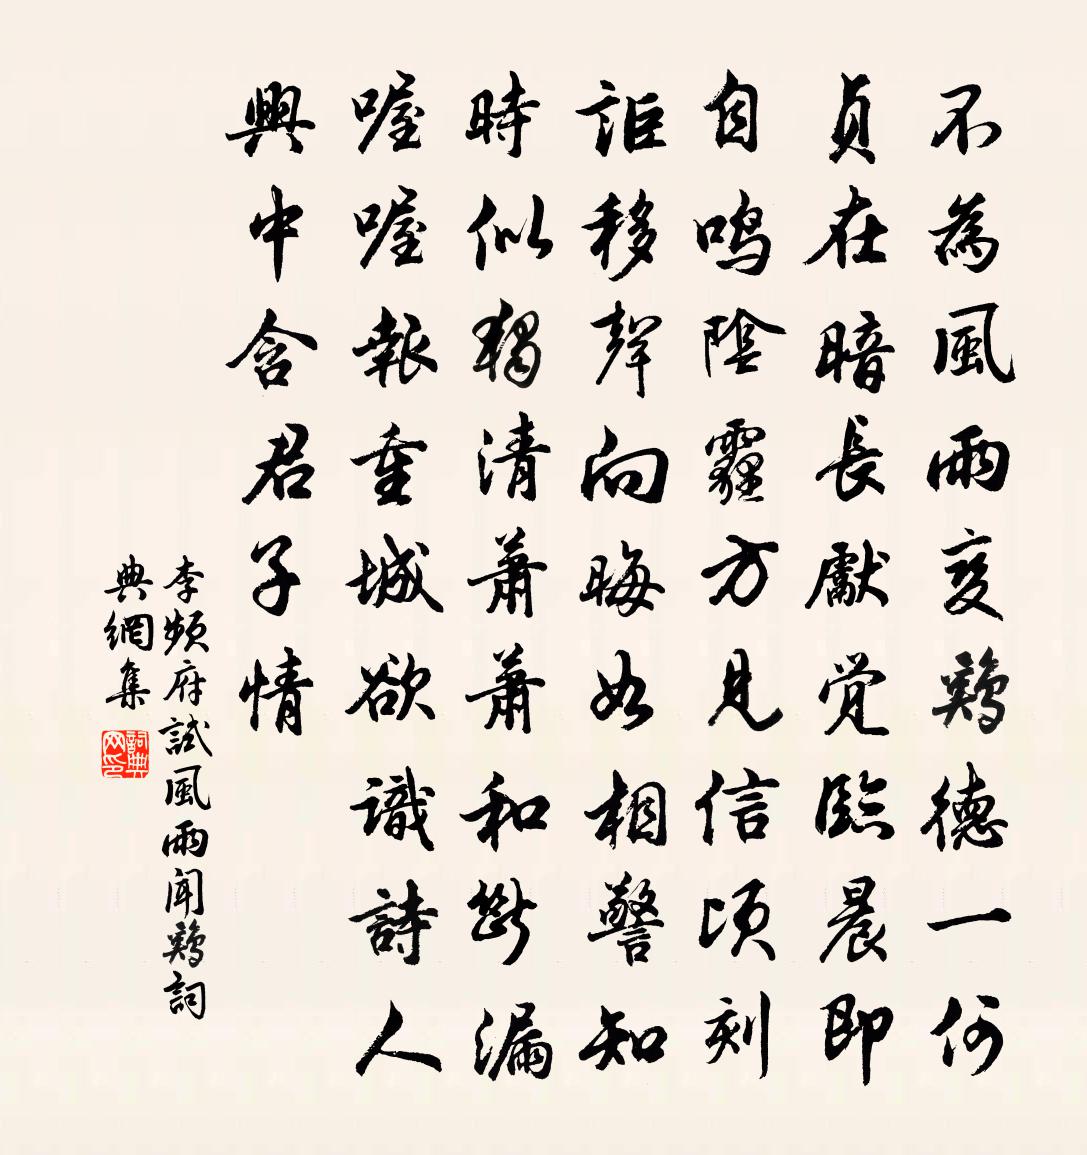 不為風雨变鷄德一何
貞在暗長獻覚臨晨即
自鸣陰霾方見信頃刻
詎移聲向晦如相警知
時似獨清蕭蕭和断漏
喔喔報重城欲識詩人
興中含君子情
李頻府試風雨闻鷄詞
典網集
詞典网印